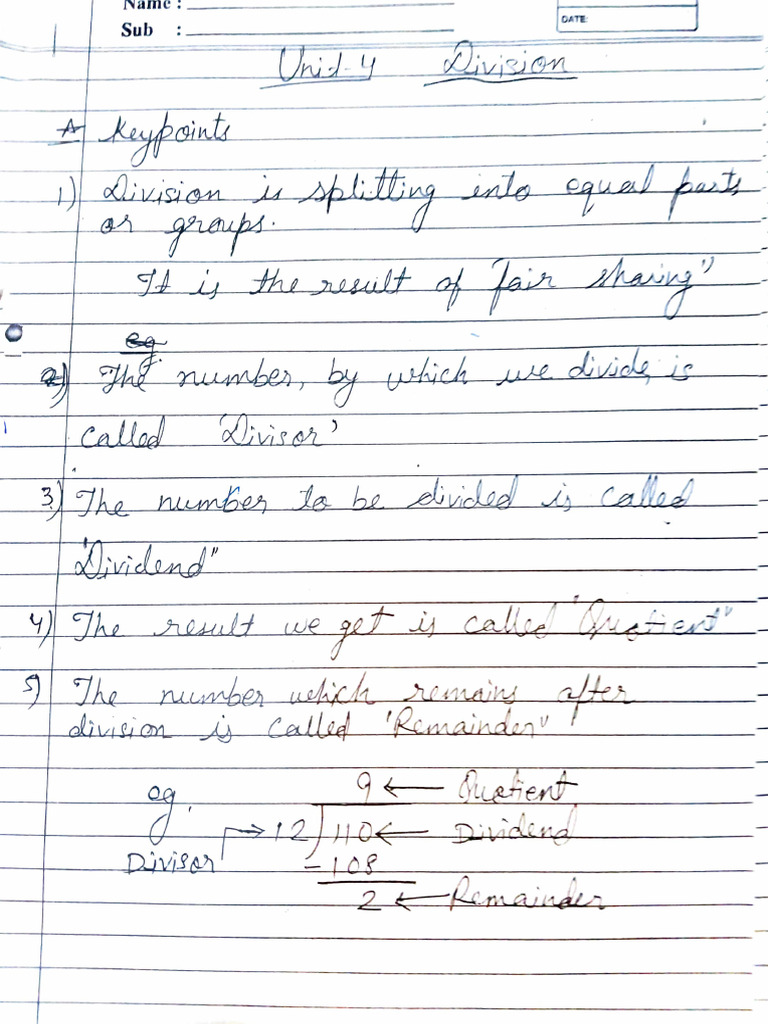 Name :
Sub :
DATE:
Unit-4 Division
A Keypoints
1) Division is splitting into equal parts
or groups.
It is the result of "fair sharing"
eg.
2) The number, by which we divide, is
called 'Divisor'
3) The number to be divided is called
"Dividend"
4) The result we get is called "Quotient"
5) The number which remains after
division is called "Remainder"
eg. 9 ← Quotient
Divisor → 12 ) 110 ← Dividend
- 108
2 ← Remainder